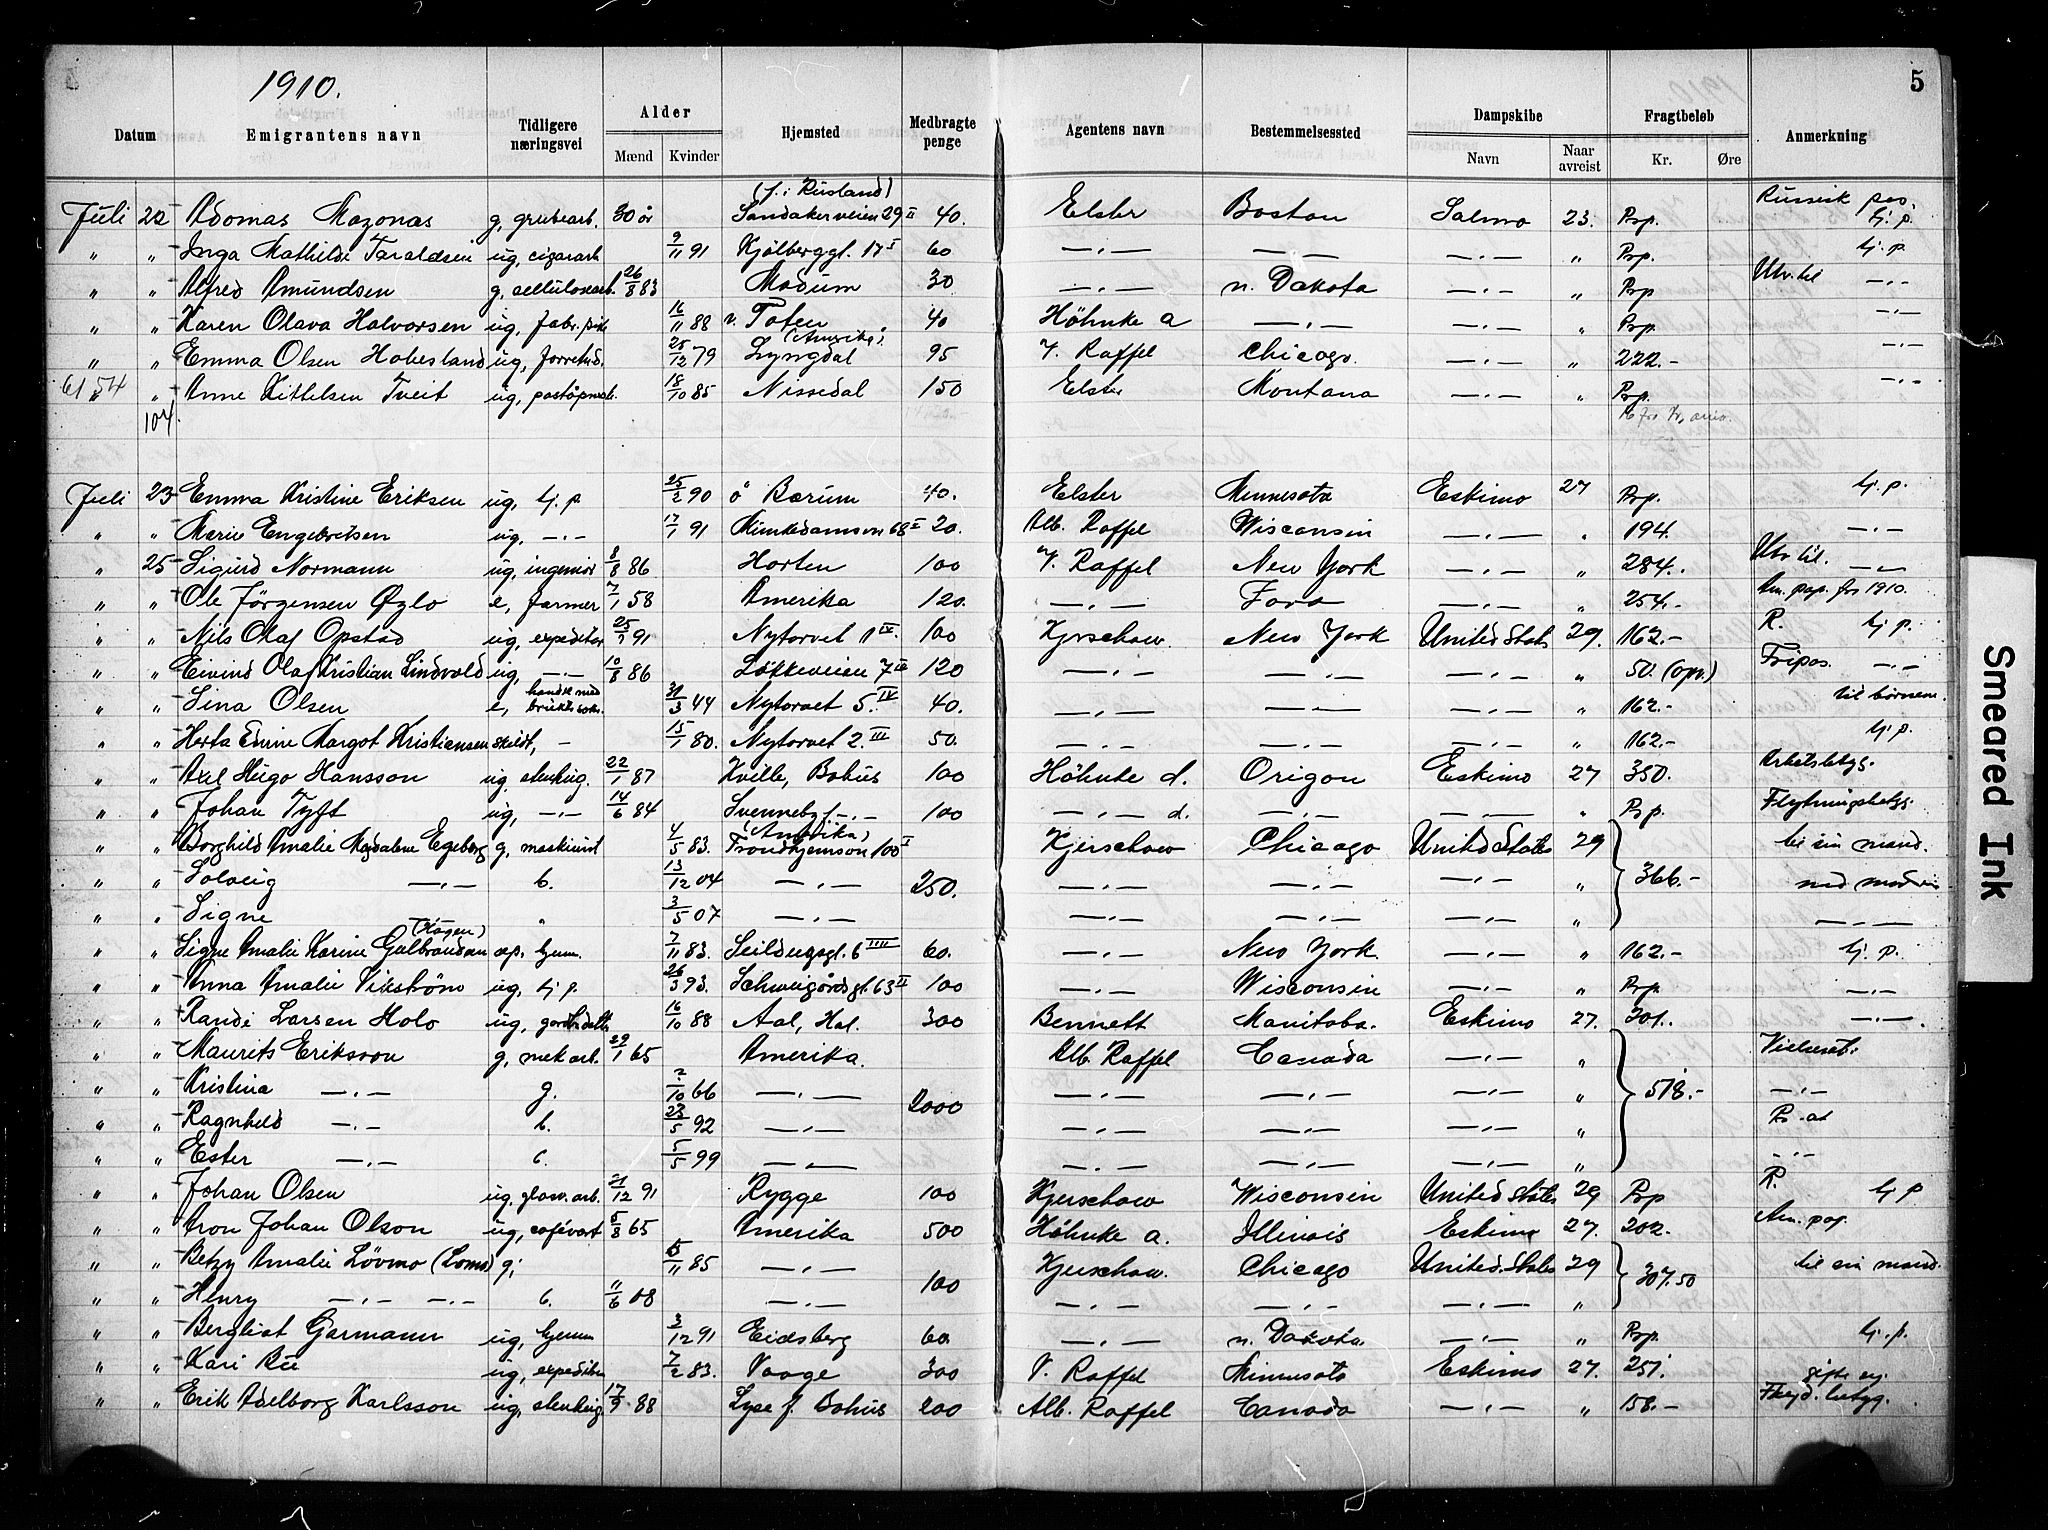 1910.
5
Datum | Emigrantens navn | Tidligere næringsvei | Alder Mænd Kvinder | Hjemsted | Medbragte penge | Agentens navn | Bestemmelsessted | Dampskibe Navn Naar avreist | Fragtbeløb Kr. Øre | Anmerkning
Juli 22 Adomas Mazonas g, grubearb. 30 år (f. i Rusland) Sandakerveien 29 II 40. Elster Boston Salmo 23. Prp. Russisk pas. tj. p.
" " Inga Mathilde Taraldsen ug, cigararb 9/11 91 Kjølberggt. 17 I 60 —"— —"— —"— " Prp. tj. p.
" " Alfred Amundsen g, cellulosearb. 26/8 83 Modum 30 —"— n. Dakota —"— " Prp Utv. til —"—
" " Karen Olava Halvorsen ug, fabr. pike 16/11 88 v. Toten 40 Höhnke a —"— —"— " Prp. —"—
" " Emma Olsen Habesland ug, forretnd. 25/12 79 (Amerika) Lyngdal 95 V. Raffel Chicago. —"— " 222.- —"—
6154 " Anne Kittelsen Tveit ug, 18/10 85 Nissedal 150 Elster Montana —"— " Prp. —"—
104.
Juli 23 Emma Kristine Eriksen ug, tj. p 25/2 90 ö Bærum 40. Elster Minnesota Eskimo 27 Prp. tj. p.
" " Marie Engebretsen ug, —"— 17/1 91 Munkedamsvn 68 I 20. Alb. Raffel Wisconsin —"— " 194. —"—
" 25 Sigurd Normann ug, ingeniør 8/8 86 Horten 100 V. Raffel New York —"— " 284.- Utv. til. —"—
" " Ole Jörgensen Øglo e, farmer 7/1 58 Amerika 120. —"— Iova —"— " 254.- Am. pap. fra 1910.
" " Nils Olaf Opstad ug, expeditør 25/7 91 Nytorvet 1 IV. 100 Kjerschow. New York United States 29. 162.- R. tj. p.
" " Eivind Olaf Kristian Lindvold ug, —"— 10/8 86 Løkkeveien 7 II 120 —"— —"— —"— " 50. (opr.) Fripas. —"—
" " Lina Olsen e, handl. med 31/3 44 Nytorvet 5. IV 40. —"— —"— —"— " 162.- til børnene
" " Herta Edine Margot Kristiansen skildt, - 15/1 80. Nytorvet 2. III 50. —"— —"— —"— " 162.- tj. p.
" " Axel Hugo Hansson ug, stenhug. 22/1 87 Kville, Bohus 100 Höhnke d. Origon Eskimo 27 350. Arbetsbetyg.
" " Johan Tyft ug, —"— 14/6 84 Svenneby, —"— 100 —"— d. —"— —"— " Prp. Flytningsbetyg.
" " Borghild Amalie Magdalene Egeberg g, maskinist 4/5 83. (Amerika) Trondhjemsvn 100 I Kjerschow Chicago United States 29 til sin mand.
" " Solveig —"— b. 13/12 04 —"— 250. —"— —"— —"— " 366.- med moderen
" " Signe " 3/5 07 —"— —"— —"— —"— " —"—
" " Signe Amalie Karine Gulbrandsen (Hagen) sep. hjem. 7/11 83. Seildugsgt. 6 IIII 60. —"— New York —"— " 162.- tj. p.
" " Anna Amalie Vikstrøm ug, tj. p. 26/3 93. Schweigårdsgt. 63 II 100 —"— Wisconsin —"— " Prp. —"—
" " Randi Larsen Holo ug, gardbr. datter 16/10 88 Aal, Hal. 300 Bennett Manitoba. Eskimo 27. 301.. —"—
" " Maurits Eriksson g, mek arb. 29/1 65 Amerika. Alb. Raffel Canada —"— " Vielseatt.
" " Kristina —"— g. 2/10 66 —"— 2000 —"— —"— —"— " 518.- —"—
" " Ragnhild —"— b. 23/5 92 —"— —"— —"— —"— "
" " Ester —"— b. 5/5 99 —"— —"— —"— —"— " —"—
" " Johan Olsen ug, glasv. arb. 21/12 91 Rygge 100 Kjerschow Wisconsin United States 29 Prp R. tj. p
" " Aron Johan Olson ug, cafévært 5/8 65 Amerika 500 Höhnke a. Illinois Eskimo 27. 202. Am. pap.
" " Betzy Amalie Lövmo (Lomo) g; 15/11 85 —"— 100 Kjerschow. Chicago United States 29 307.50 til sin mand.
" " Henry —"— —"— b. 11/6 08 —"— —"— —"— —"— "
" " Bergliot Garmann ug, hjem 3/12 91 Eidsberg 60. —"— n. Dakota. —"— " Prp. tj. p.
" " Kari Bu ug, expeditr 7/2 83. Vaage 300 V. Raffel Minnesota Eskimo 27. 251. gifte sig.
" " Erik Adelborg Karlsson ug, stenhug. 17/9 88 Lyse f. Bohus 200 Alb. Raffel Canada —"— " 158.- Flytt. betyg.
Smeared Ink